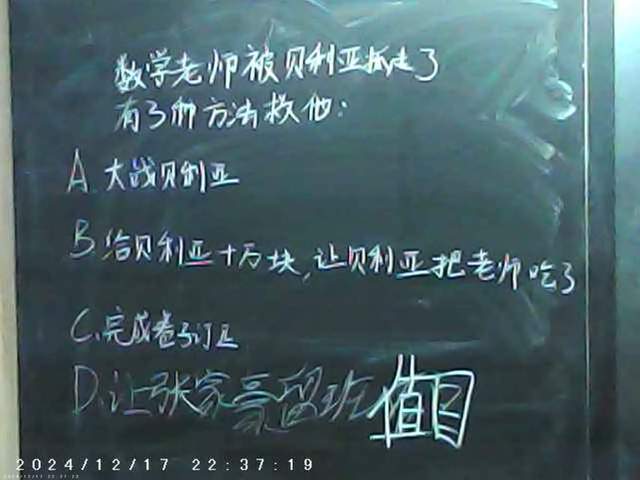 数学老师被贝利亚抓走了
有3种方法救他：
A.大战贝利亚
B.给贝利亚十万块,让贝利亚把老师吃了
C.完成卷子订正
D.让张家豪留班值日
2024/12/17 22:37:19